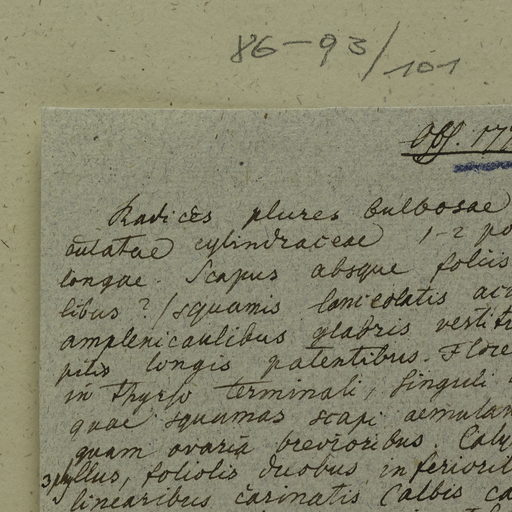 86-93/101
Off. 177
Radices plures bulbosae
culatae cylindraceae 1-2 po
longae. Scapus absque foliis
libus? / squamis lanceolatis acu
amplexicaulibus glabris vestitu
pitis longis patentibus. Flore
in thyrso terminali, singuli
quae squamas scapi aemulan
quam ovaria brevioribus. Caly
3phyllus, foliolis duobus inferiorib
linearibus carinatis (albis ca